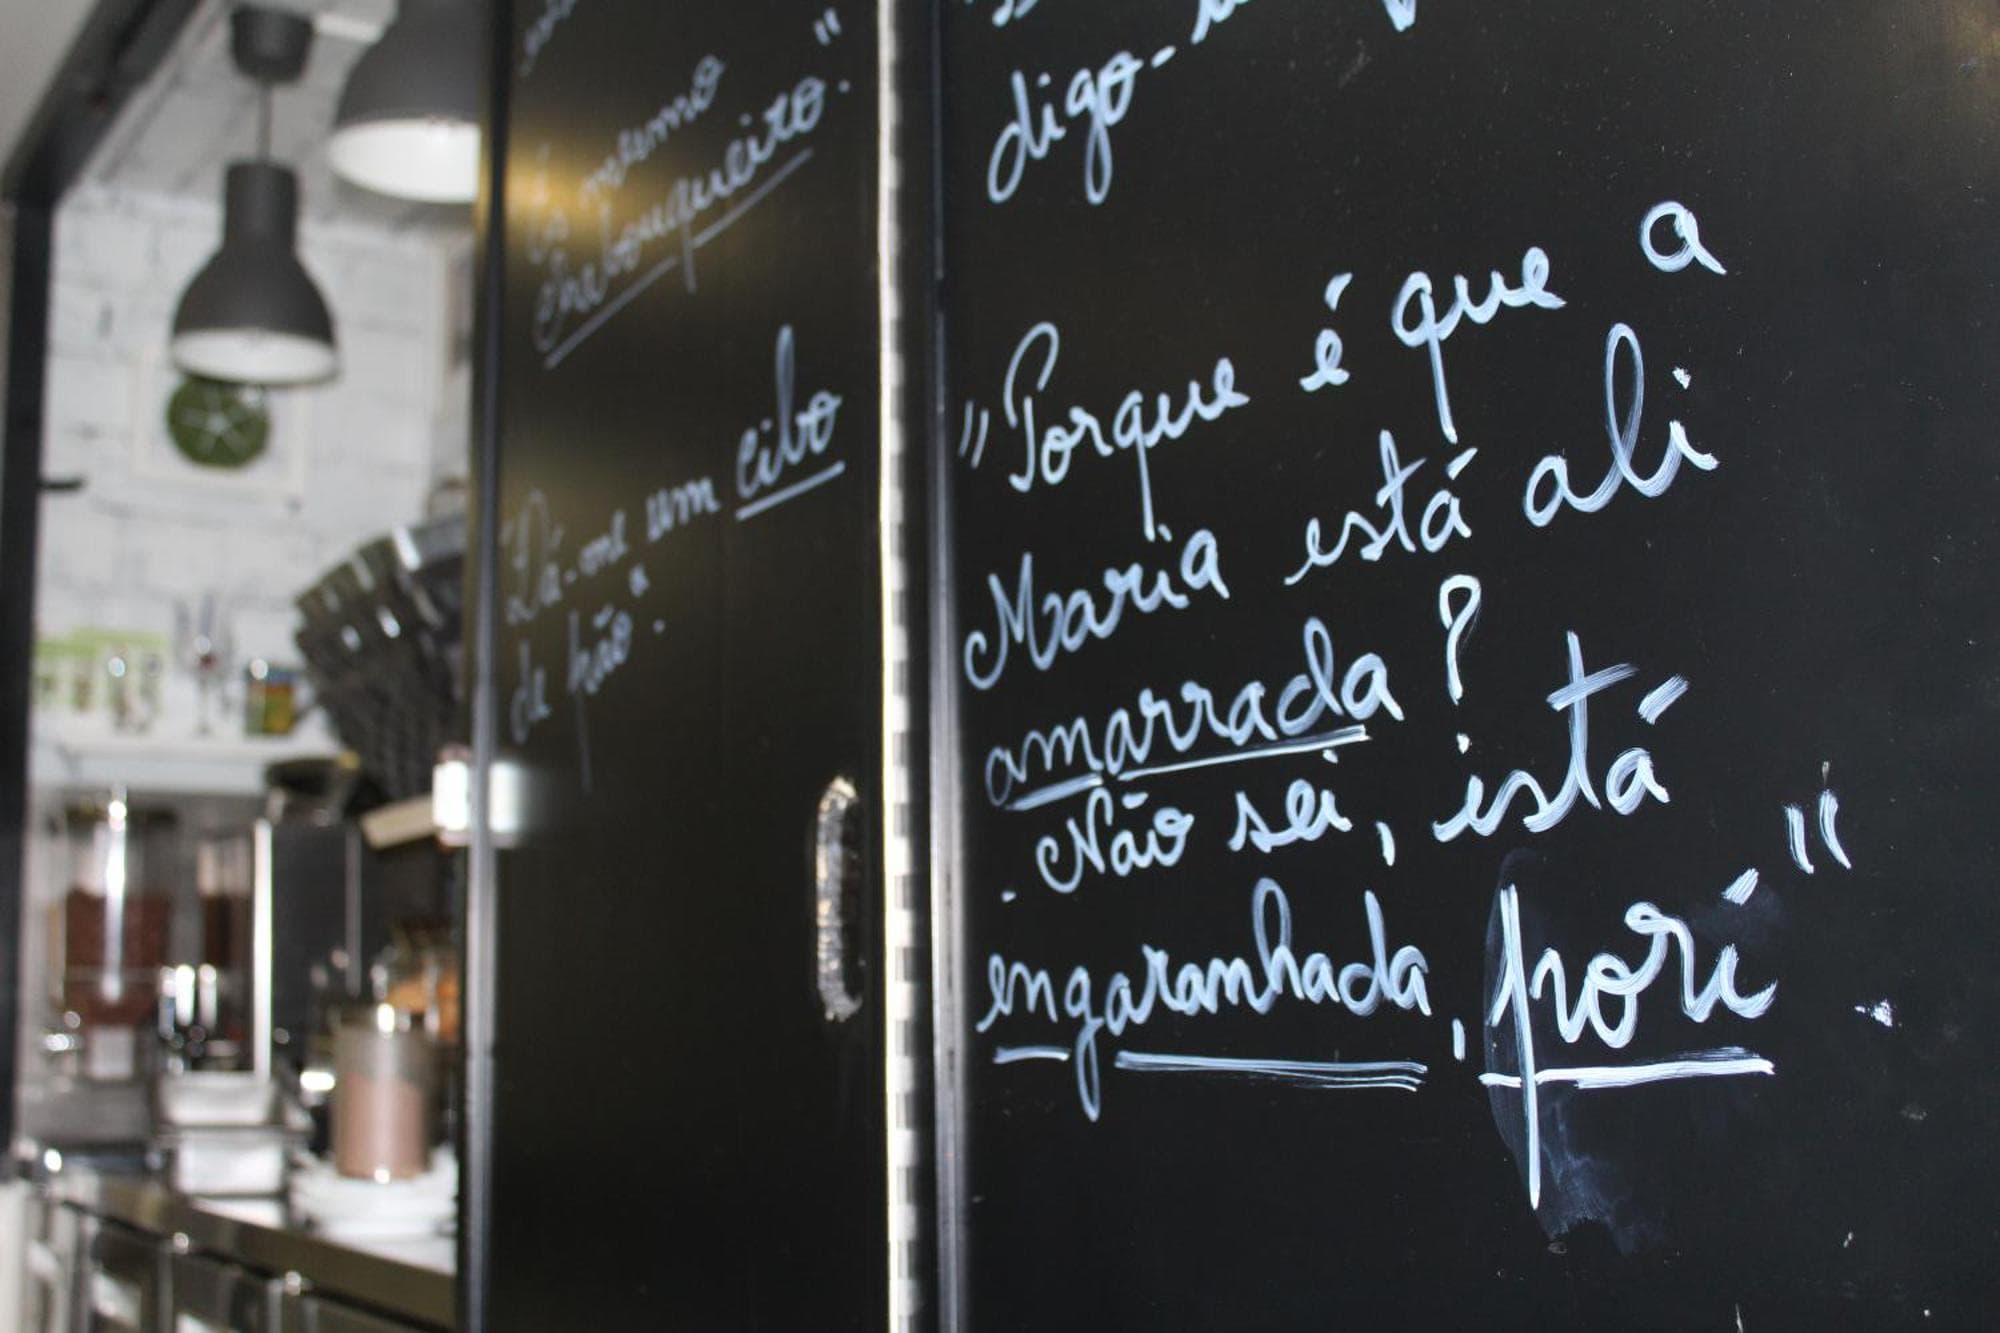 És mesmo
enbouqueiro."
"Dá-me um cibo
de pão".
digo-
"Porque é que a
Maria está ali
amarrada?
- Não sei, está
engaranhada, pori".